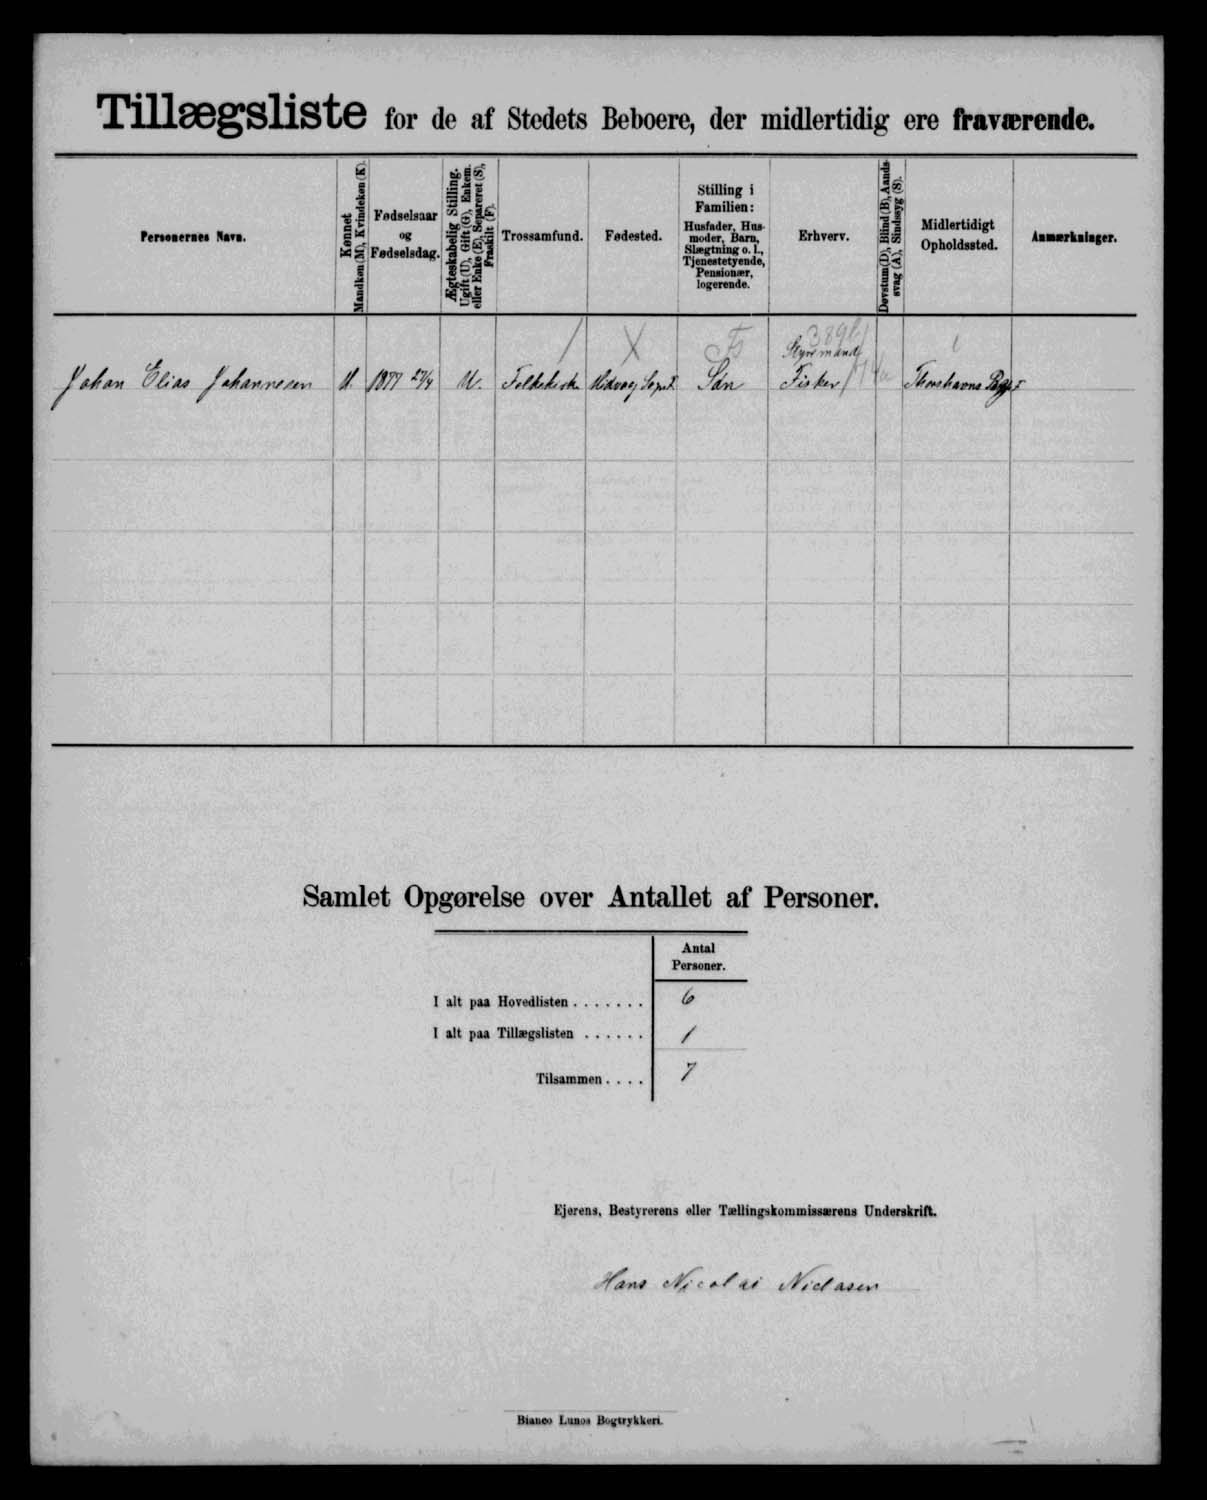 Tillægsliste for de af Stedets Beboere, der midlertidig ere fraværende.
Personernes Navn.
Kønnet
Mandkøn (M), Kvindekøn (K).
Fødselsaar
og
Fødselsdag.
Ægteskabelig Stilling.
Ugift (U), Gift (G), Enkem.
eller Enke (E), Separeret (S),
Fraskilt (F).
Trossamfund.
Fødested.
Stilling i
Familien:
Husfader, Hus-
moder, Barn,
Slægtning o. l.,
Tjenestetyende,
Pensionær,
logerende.
Erhverv.
Døvstum (D), Blind (B), Aands-
svag (A), Sindssyg (S).
Midlertidigt
Opholdssted.
Anmærkninger.
Styrmand
Johan Elias Johannesen M. 1877 27/4 U. Folkekirke Midvaag Sogn F. Søn Fisker Thorshavns
Samlet Opgørelse over Antallet af Personer.
Antal
Personer.
I alt paa Hovedlisten . . . . . . . 6
I alt paa Tillægslisten . . . . . . 1
Tilsammen . . . . 7
Ejerens, Bestyrerens eller Tællingskommissærens Underskrift.
Hans Nicolai Niclasen
Bianco Lunos Bogtrykkeri.